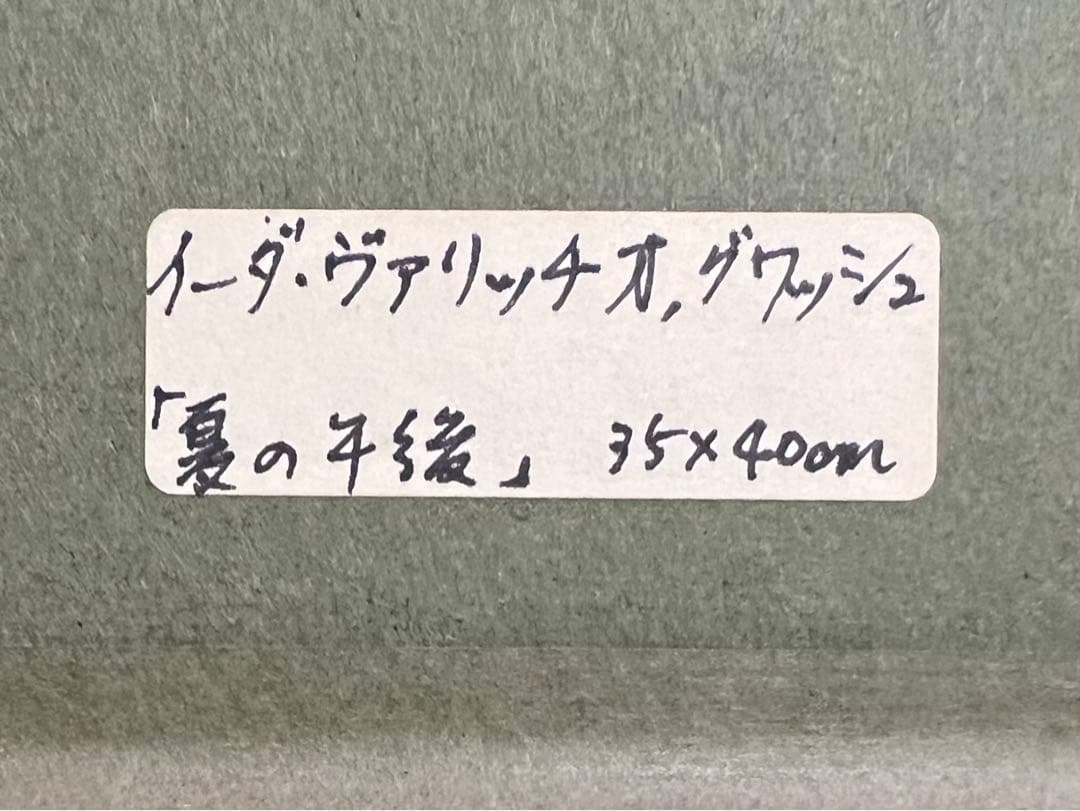 イーダ・ヴァリッチオ，グワッシュ
「夏の午後」 35×40cm